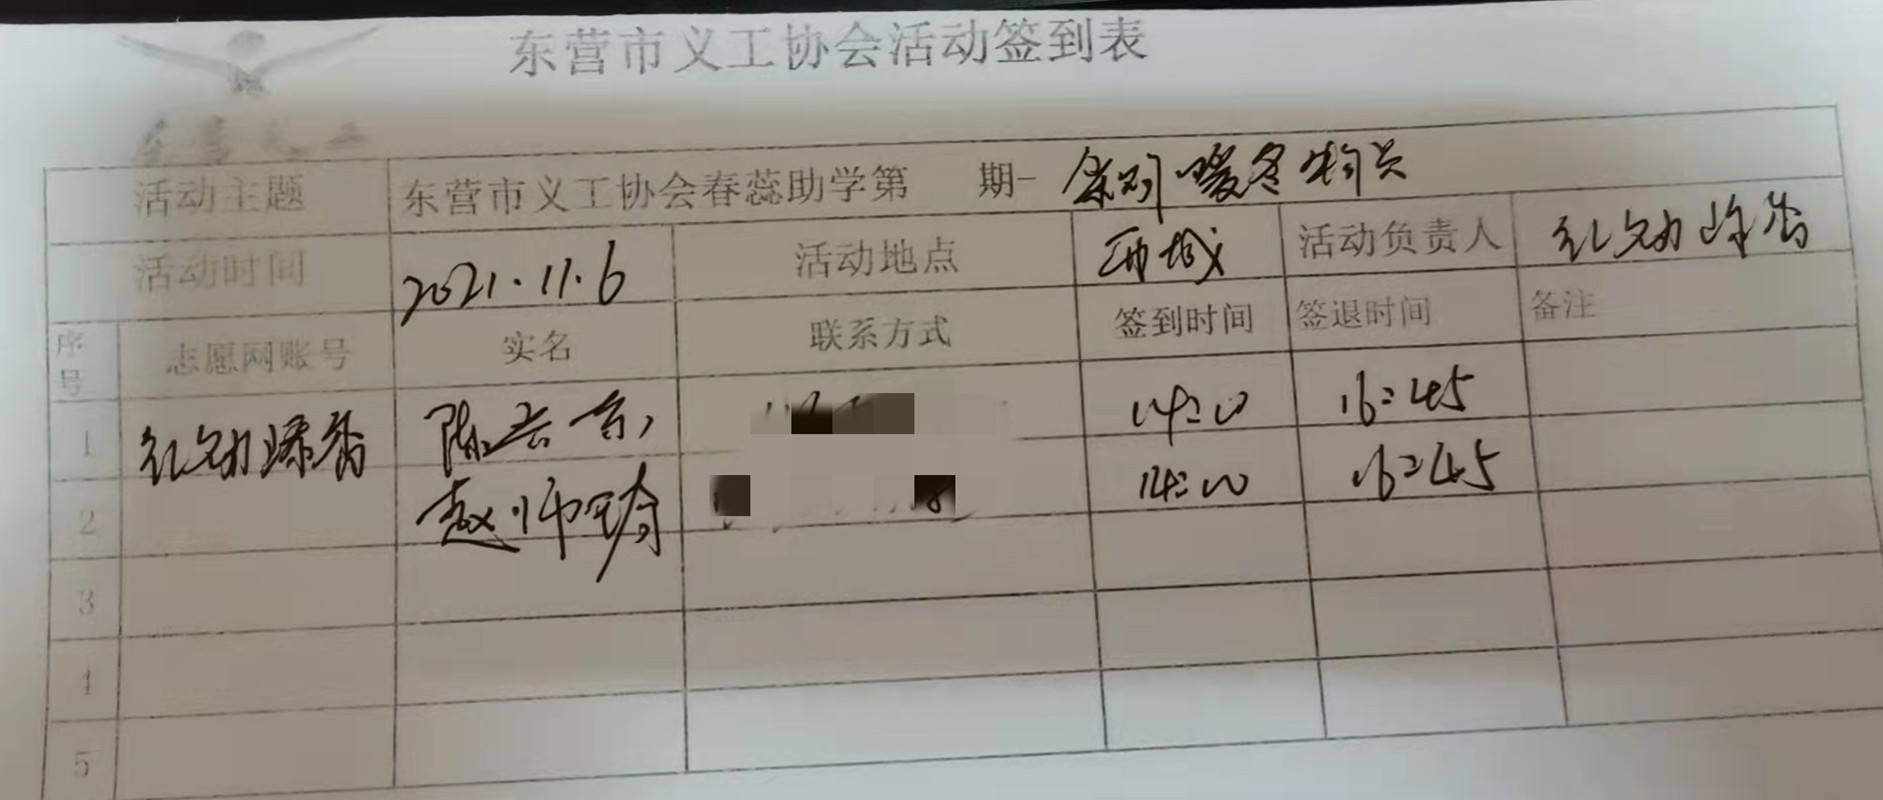 东营市义工协会活动签到表
活动主题 东营市义工协会春蕊助学第 期- 暖冬物资
活动时间 2021.11.6 活动地点 西城 活动负责人
序号 志愿网账号 实名 联系方式 签到时间 签退时间 备注
1 陈 14:00 16:45
2 赵师 14:00 16:45
3
4
5